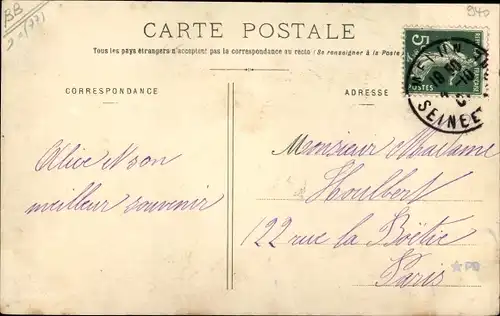 BB
940
CARTE POSTALE
Tous les pays étrangers n'acceptent pas la correspondance au recto (Se renseigner à la Poste)
CORRESPONDANCE
ADRESSE
5
POSTES
MELUN
SEINE E
Monsieur Madame
Houlbert
122 rue la Boëtie
Paris
Alice & son
meilleur souvenir
PB